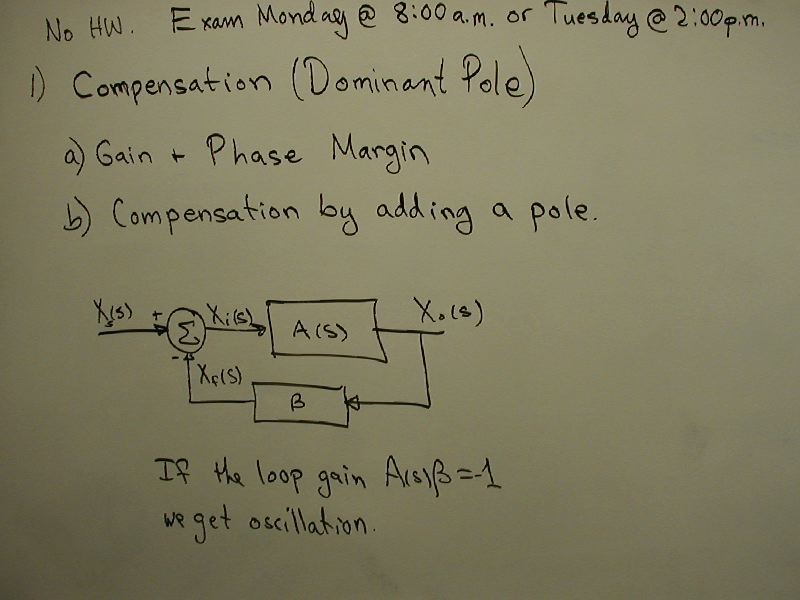 No HW. Exam Monday @ 8:00 a.m. or Tuesday @ 2:00p.m.
1) Compensation (Dominant Pole)
a) Gain + Phase Margin
b) Compensation by adding a pole.
Xs(s) + Σ Xi(s) A(s) Xo(s)
-
Xf(s)
β
If the loop gain A(s)β=-1
we get oscillation.